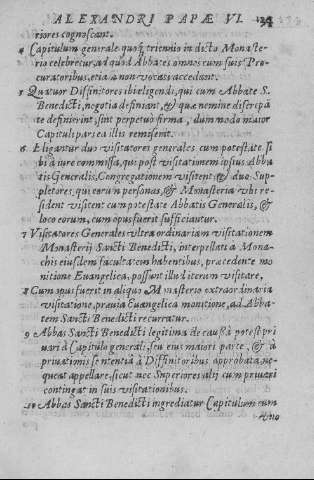 ALEXANDRI PAPÆ VI. 134
riores cognoscant.
4 Capitulum generale quoq; triennio in dicto Monaste-
rio celebretur, ad quod Abbates omnes cum suis Pro-
curatoribus, etiā non vocati accedant.
5 Quatuor Diffinitores ibi eligendi, qui cum Abbate S.
Benedicti, negotia definiant, & quæ nemine discrepā
te definierint, sint perpetuò firma, dum modo maior
Capituli pars ea illis remiserit.
6 Eligantur duo visitatores generales cum potestate si
bi à iure commissa, qui post visitationem ipsius Abba
tis Generalis, Congregationem visitent, & duo Sup-
pletores, qui earum personas, & Monasteria vbi re-
sident visitent cum potestate Abbatis Generalis, &
loco eorum, cum opus fuerit sufficiantur.
7 Visitatores Generales vltra ordinariam visitationem
Monasterij Sancti Benedicti, interpellati à Mona-
chis eiusdem facultatem habentibus, præcedente mo
nitione Euangelica, possunt illud iterum visitare,
8 Cum opus fuerit in aliquo Monasterio extraordinaria
visitatione, præuia Euangelica monitione, ad Abba-
tem Sancti Benedicti recurratur.
9 Abbas Sancti Benedicti legitima de causa à potest pri
uari à Capitulo generali, seu eius maiori parte, & à
priuationis sententia à Diffinitoribus approbata, ne-
queat appellare, sicut nec Superiores alij cum priuari
contingat in suis visitationibus.
10 Abbas Sancti Benedicti ingrediatur Capitulum cum